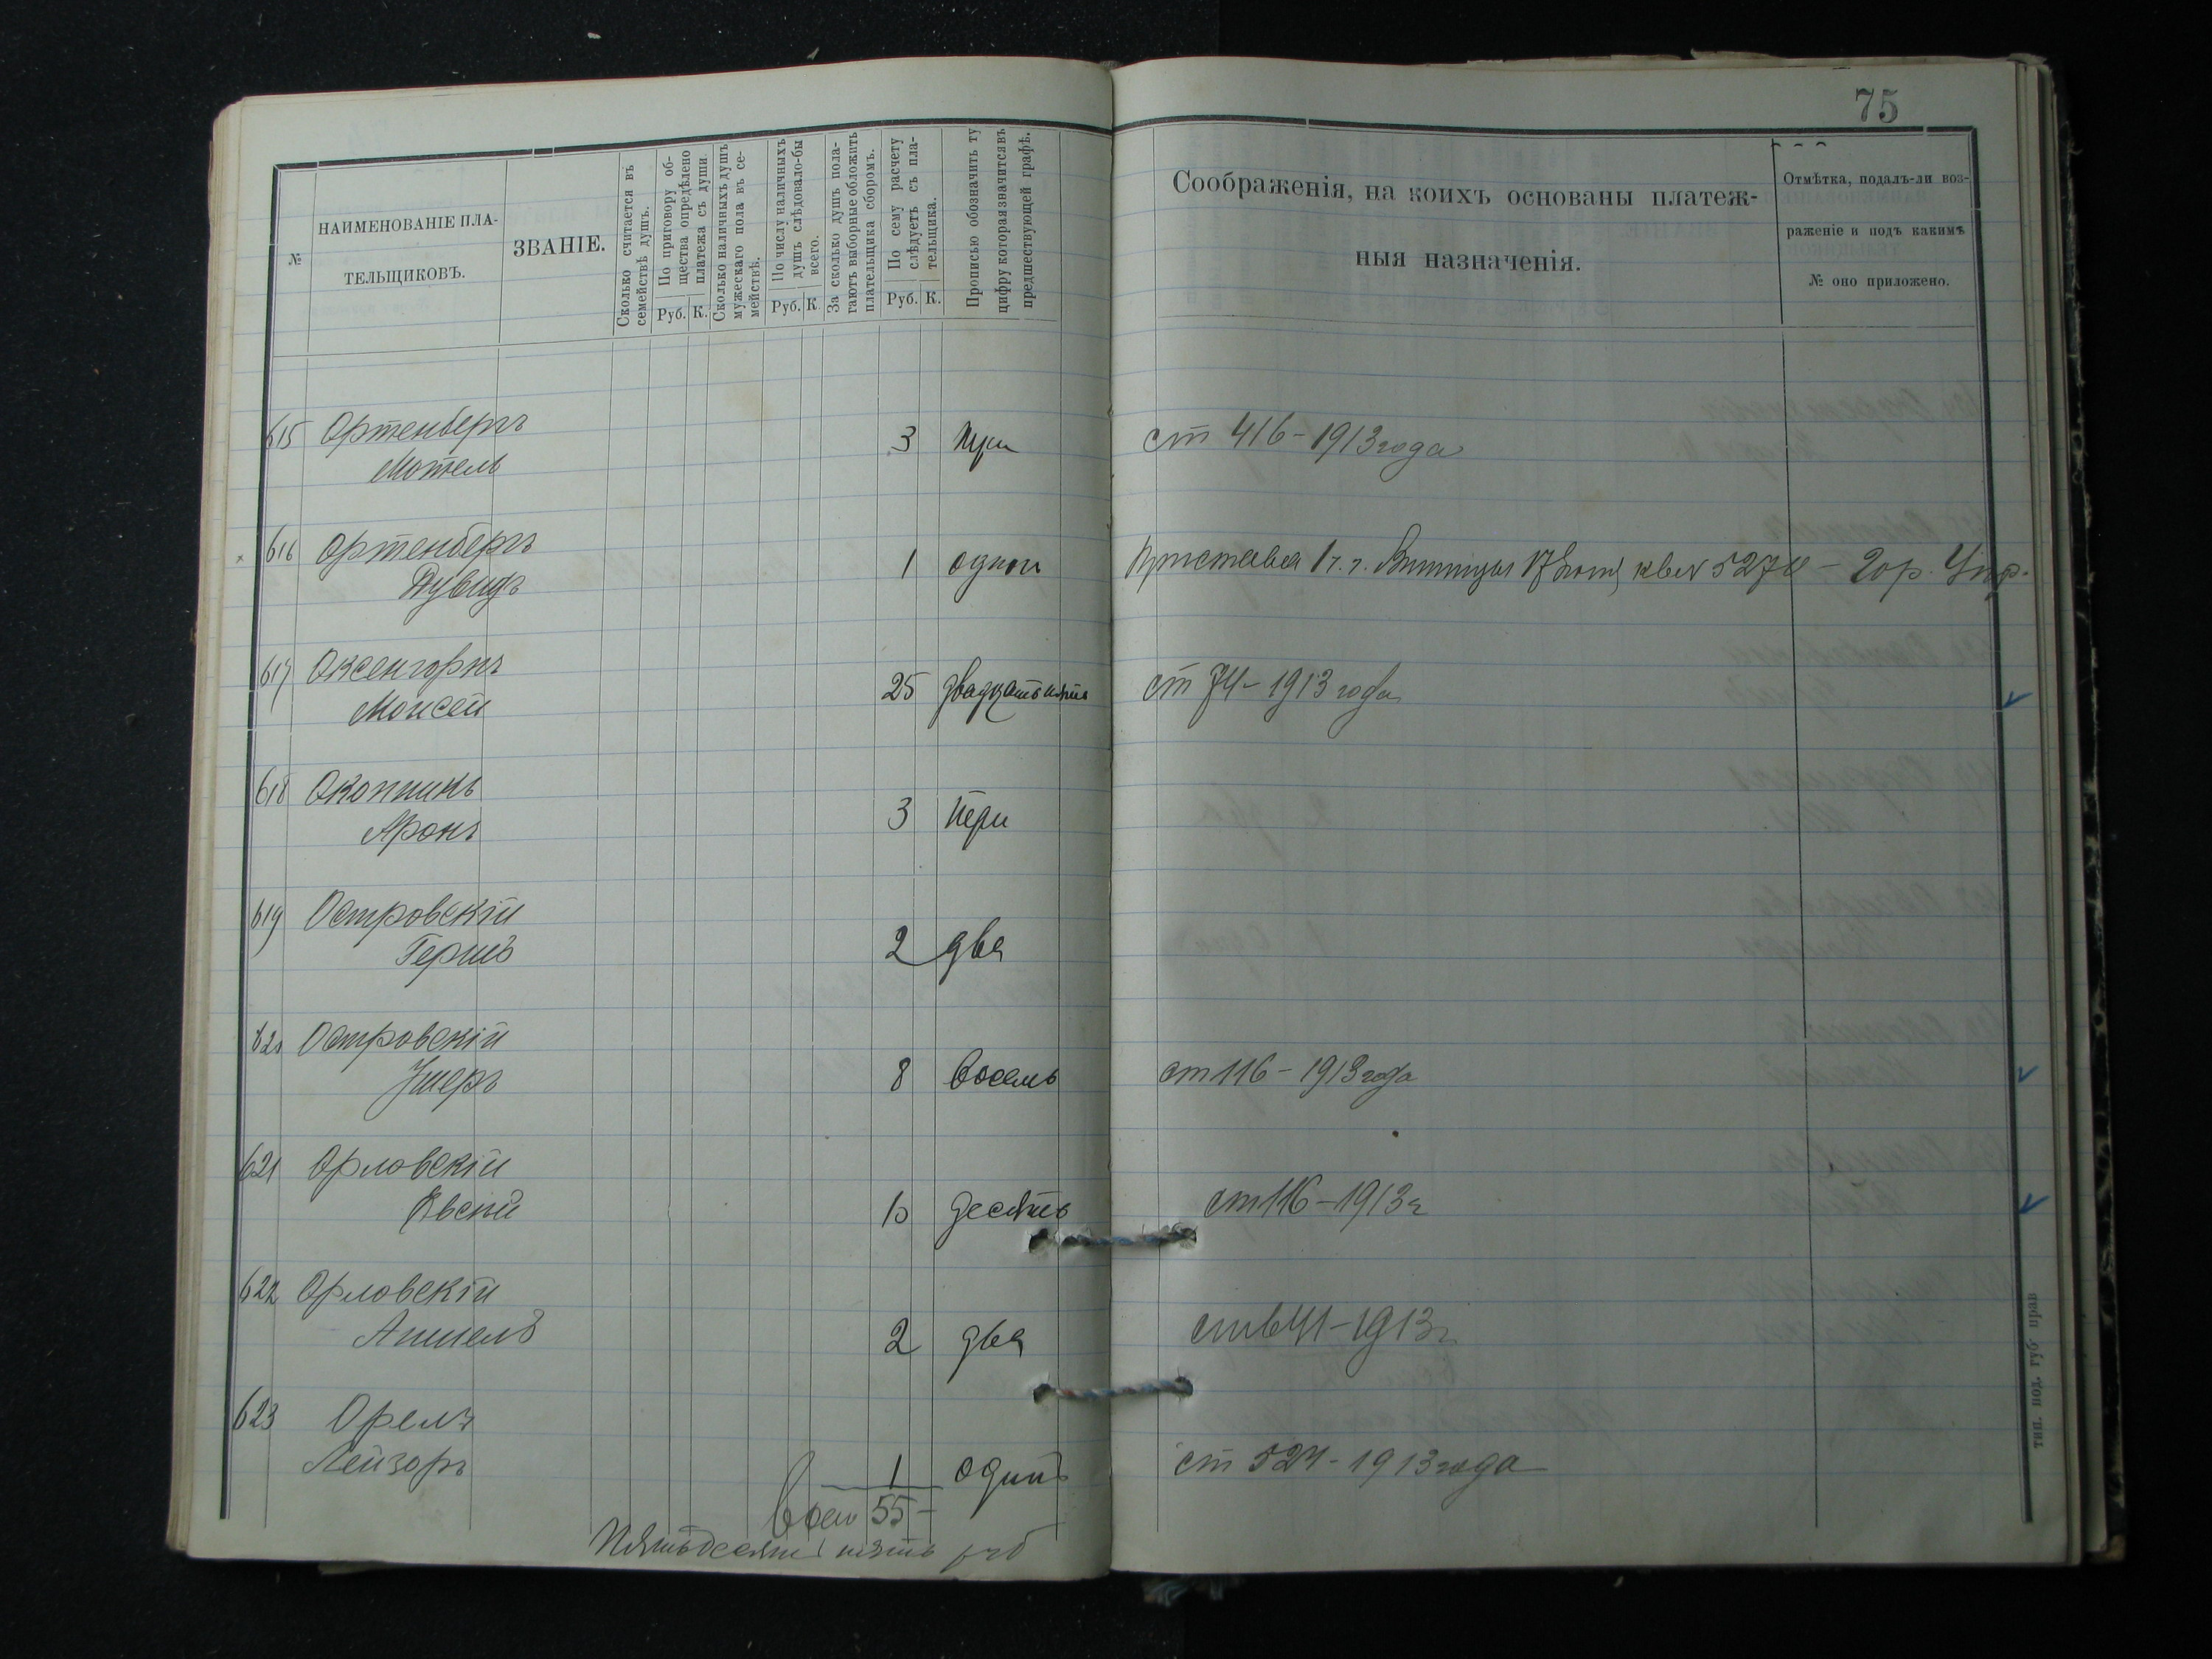 75
№
НАИМЕНОВАНІЕ ПЛА-
ТЕЛЬЩИКОВЪ.
ЗВАНІЕ.
Сколько считается въ
семействѣ душъ.
По приговору об-
щества опредѣлено
платежа съ души.
Руб. К.
Сколько наличныхъ душъ
мужескаго пола въ се-
мействѣ.
По числу наличныхъ
душъ слѣдовало-бы
всего.
Руб. К.
За сколько душъ пола-
гаютъ выборные обложить
плательщика сборомъ.
По сему расчету
слѣдуетъ съ пла-
тельщика.
Руб. К.
Прописью обозначить ту
цифру которая значится въ
предшествующей графѣ.
Соображенія, на коихъ основаны платеж-
ныя назначенія.
Отмѣтка, подалъ-ли воз-
раженіе и подъ какимъ
№ оно приложено.
615 Ортенбергъ
Мотель 3 три ст 416 - 1913 года
616 Ортенбергъ
Дувидъ 1 один Пристава 1 ч. г. Винницы 17 кв № 5274 - Гор. Упр.
617 Оксенгорнъ
Моисей 25 двадцать пять ст 74 - 1913 года
618 Окопникъ
Аронъ 3 три
619 Островскій
Гершъ 2 два
620 Островскій
Ушеръ 8 восемь ст 116 - 1913 года
621 Орловскій
Евсей 10 десять ст 116 - 1913 г
622 Орловскій
Аншелъ 2 два ст 641 - 1913 г
623 Орелъ
Лейзоръ 1 одинъ ст 524 - 1913 года
Всего 55 -
Пятьдесят пять руб
тип. под. губ прав